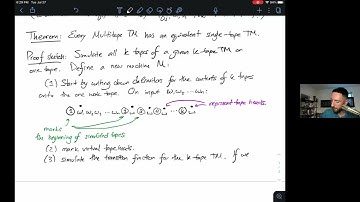 6:38 PM Tue Jul 27
Theorem: Every Multitape TM has an equivalent single-tape TM.
Proof sketch: Simulate all k tapes of a given k-tape TM on
one tape. Define a new machine M:
(1) Start by writing down delimiters for the contents of k tapes
onto the one work tape. On input w₁ ... wₙ:
① ẇ₁ w₂ w₃ ... wₙ ② ③ ④ ... ⓚ
represent tape heads.
marks
the beginning of simulated tapes
(2) mark virtual tape heads.
(3) simulate the transition function for the k-tape TM. If we